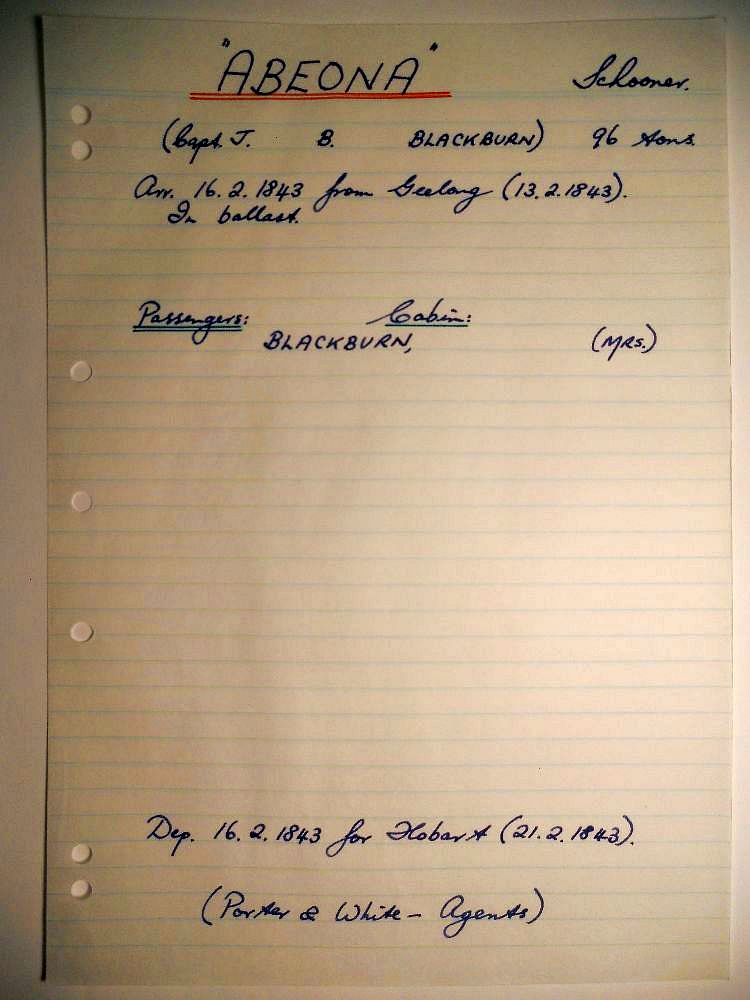 "ABEONA" Schooner.
(Capt. J. B. BLACKBURN) 96 tons.
Arr. 16.2.1843 from Geelong (13.2.1843).
In ballast.
Passengers: Cabin:
BLACKBURN, (MRS.)
Dep. 16.2.1843 for Hobart (21.2.1843).
(Porter & White - Agents)